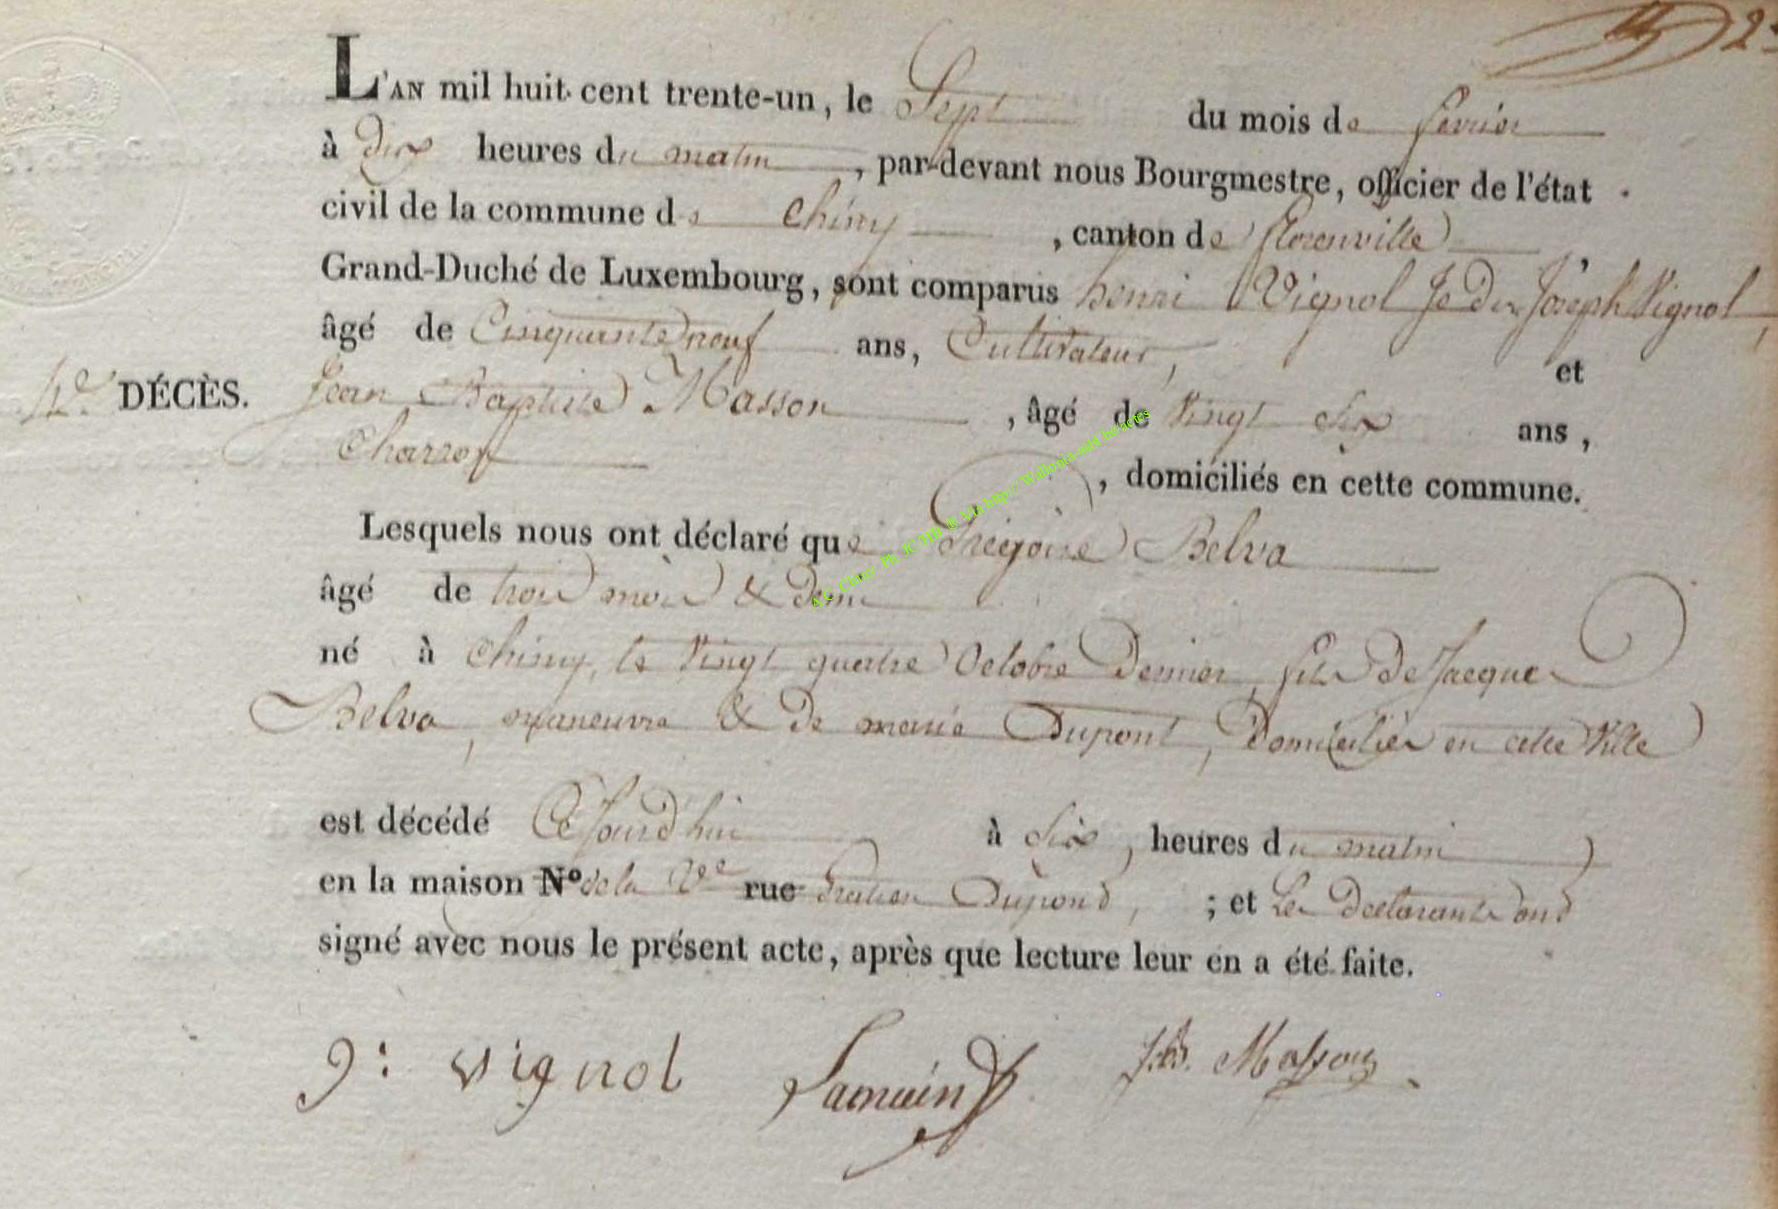 L'AN mil huit cent trente-un, le Sept du mois de fevrier
à dix heures du matin, par-devant nous Bourgmestre, officier de l'état
civil de la commune de Chiny, canton de florenville,
Grand-Duché de Luxembourg, sont comparus henri Vignol fs de Joseph Vignol,
âgé de Cinquante neuf ans, Cultivateur, et
4e DÉCÈS. Jean Baptiste Masson, âgé de Vingt Six ans,
Charron, domiciliés en cette commune.
Lesquels nous ont déclaré que Grégoire Belva
âgé de trois mois & demi
né à Chiny, le Vingt quatre Octobre Dernier, fils de Jacque
Belva, maneuvre & de marie Dupont, Domiciliés en cette Ville
est décédé Cejourd'hui à Six, heures du matin
en la maison N° de la Ve rue Dupond, ; et Les Declarants ond
signé avec nous le présent acte, après que lecture leur en a été faite.
Vignol Lamuin J.B. Masson